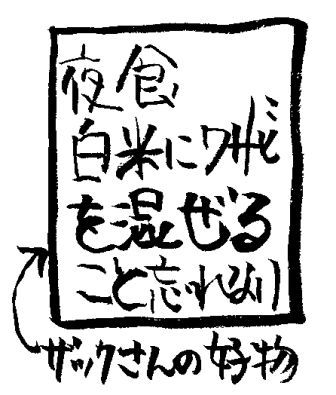 夜食
白米にワサビ
を混ぜる
こと忘れない
ザックさんの好物